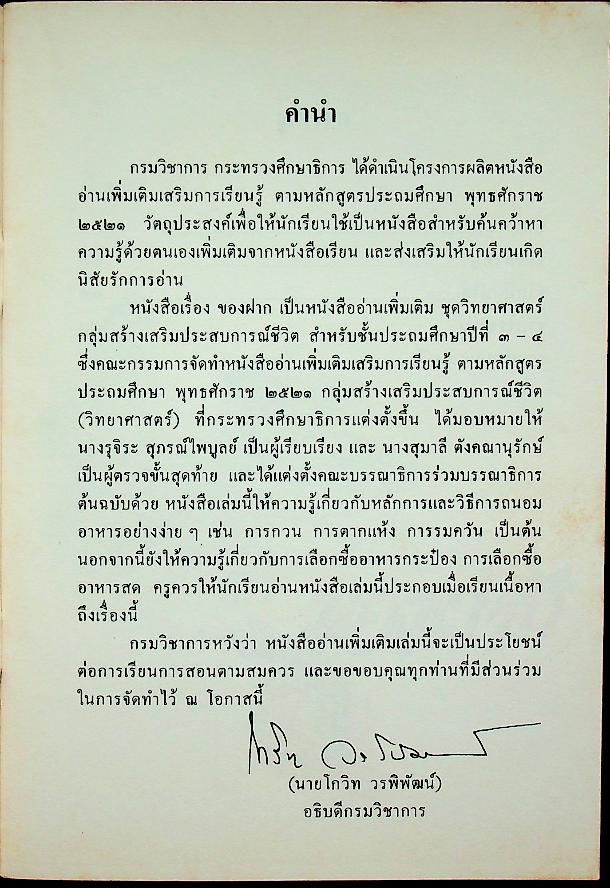 คำนำ
กรมวิชาการ กระทรวงศึกษาธิการ ได้ดำเนินโครงการผลิตหนังสือ
อ่านเพิ่มเติมเสริมการเรียนรู้ ตามหลักสูตรประถมศึกษา พุทธศักราช
๒๕๒๑ วัตถุประสงค์เพื่อให้นักเรียนใช้เป็นหนังสือสำหรับค้นคว้าหา
ความรู้ด้วยตนเองเพิ่มเติมจากหนังสือเรียน และส่งเสริมให้นักเรียนเกิด
นิสัยรักการอ่าน
หนังสือเรื่อง ของฝาก เป็นหนังสืออ่านเพิ่มเติม ชุดวิทยาศาสตร์
กลุ่มสร้างเสริมประสบการณ์ชีวิต สำหรับชั้นประถมศึกษาปีที่ ๓ – ๔
ซึ่งคณะกรรมการจัดทำหนังสืออ่านเพิ่มเติมเสริมการเรียนรู้ ตามหลักสูตร
ประถมศึกษา พุทธศักราช ๒๕๒๑ กลุ่มสร้างเสริมประสบการณ์ชีวิต
(วิทยาศาสตร์) ที่กระทรวงศึกษาธิการแต่งตั้งขึ้น ได้มอบหมายให้
นางรุจิระ สุภรณ์ไพบูลย์ เป็นผู้เรียบเรียง และ นางสุมาลี ตังคณานุรักษ์
เป็นผู้ตรวจขั้นสุดท้าย และได้แต่งตั้งคณะบรรณาธิการร่วมบรรณาธิการ
ต้นฉบับด้วย หนังสือเล่มนี้ให้ความรู้เกี่ยวกับหลักการและวิธีการถนอม
อาหารอย่างง่าย ๆ เช่น การกวน การตากแห้ง การรมควัน เป็นต้น
นอกจากนี้ยังให้ความรู้เกี่ยวกับการเลือกซื้ออาหารกระป๋อง การเลือกซื้อ
อาหารสด ครูควรให้นักเรียนอ่านหนังสือเล่มนี้ประกอบเมื่อเรียนเนื้อหา
ถึงเรื่องนี้
กรมวิชาการหวังว่า หนังสืออ่านเพิ่มเติมเล่มนี้จะเป็นประโยชน์
ต่อการเรียนการสอนตามสมควร และขอขอบคุณทุกท่านที่มีส่วนร่วม
ในการจัดทำไว้ ณ โอกาสนี้
(นายโกวิท วรพิพัฒน์)
อธิบดีกรมวิชาการ